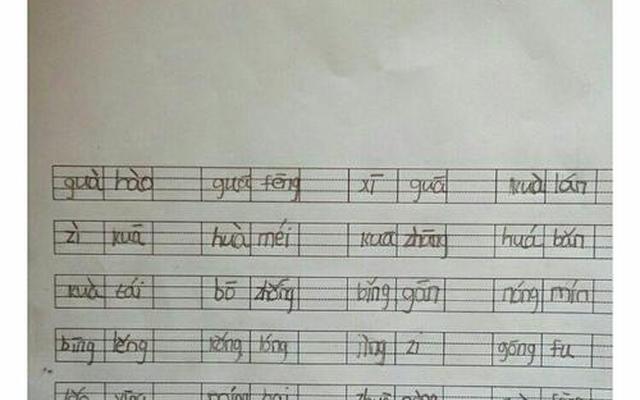 guà hào guā fēng xī guā kuà lán
zì kuā huà méi kuā zhāng huá bǎn
kuà tái bō zhǒng bǐng gān nóng mín
bīng lěng kǒng lóng jìng zi gōng fu